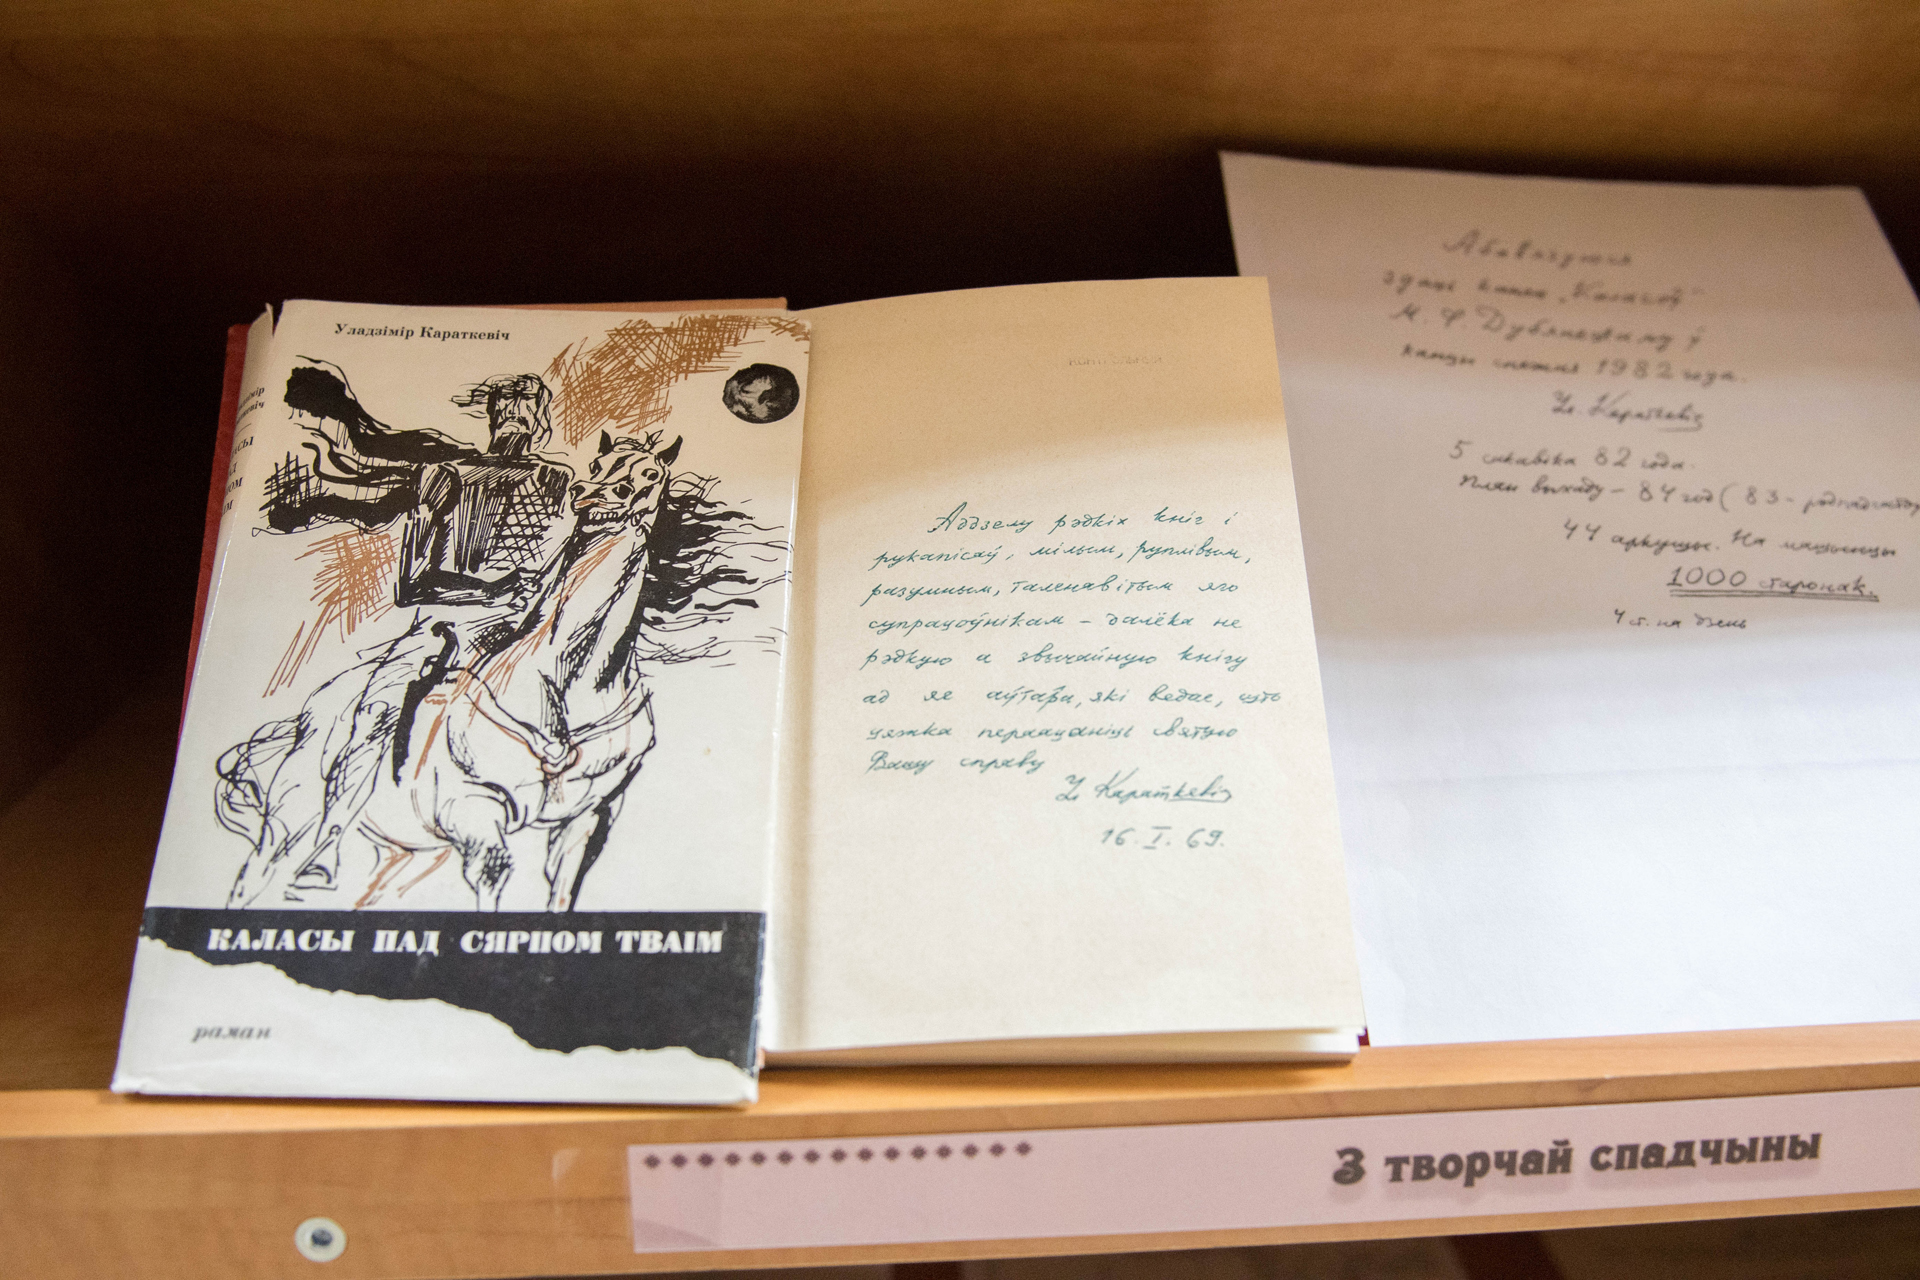 Уладзімір Караткевіч
КАЛАСЫ ПАД СЯРПОМ ТВАІМ
раман
Аддзелу рэдкіх кніг і
рукапісаў, мілым, руплівым,
разумным, таленавітым яго
супрацоўнікам – далёка не
рэдкую а звычайную кнігу
ад яе аўтара, які ведае, што
цяжка пераацаніць святую
Вашу справу
Ул Караткевіч
16. I. 69.
Абавязуюся
здаць канец „Каласоў"
М. Ф. Дубянецкаму ў
канцы снежня 1982 года.
Ул. Караткевіч
5 сакавіка 82 года.
План выхаду – 84 год (83 –
44 аркушы. На машынцы
1000 старонак.
4 ст. на дзень
З творчай спадчыны